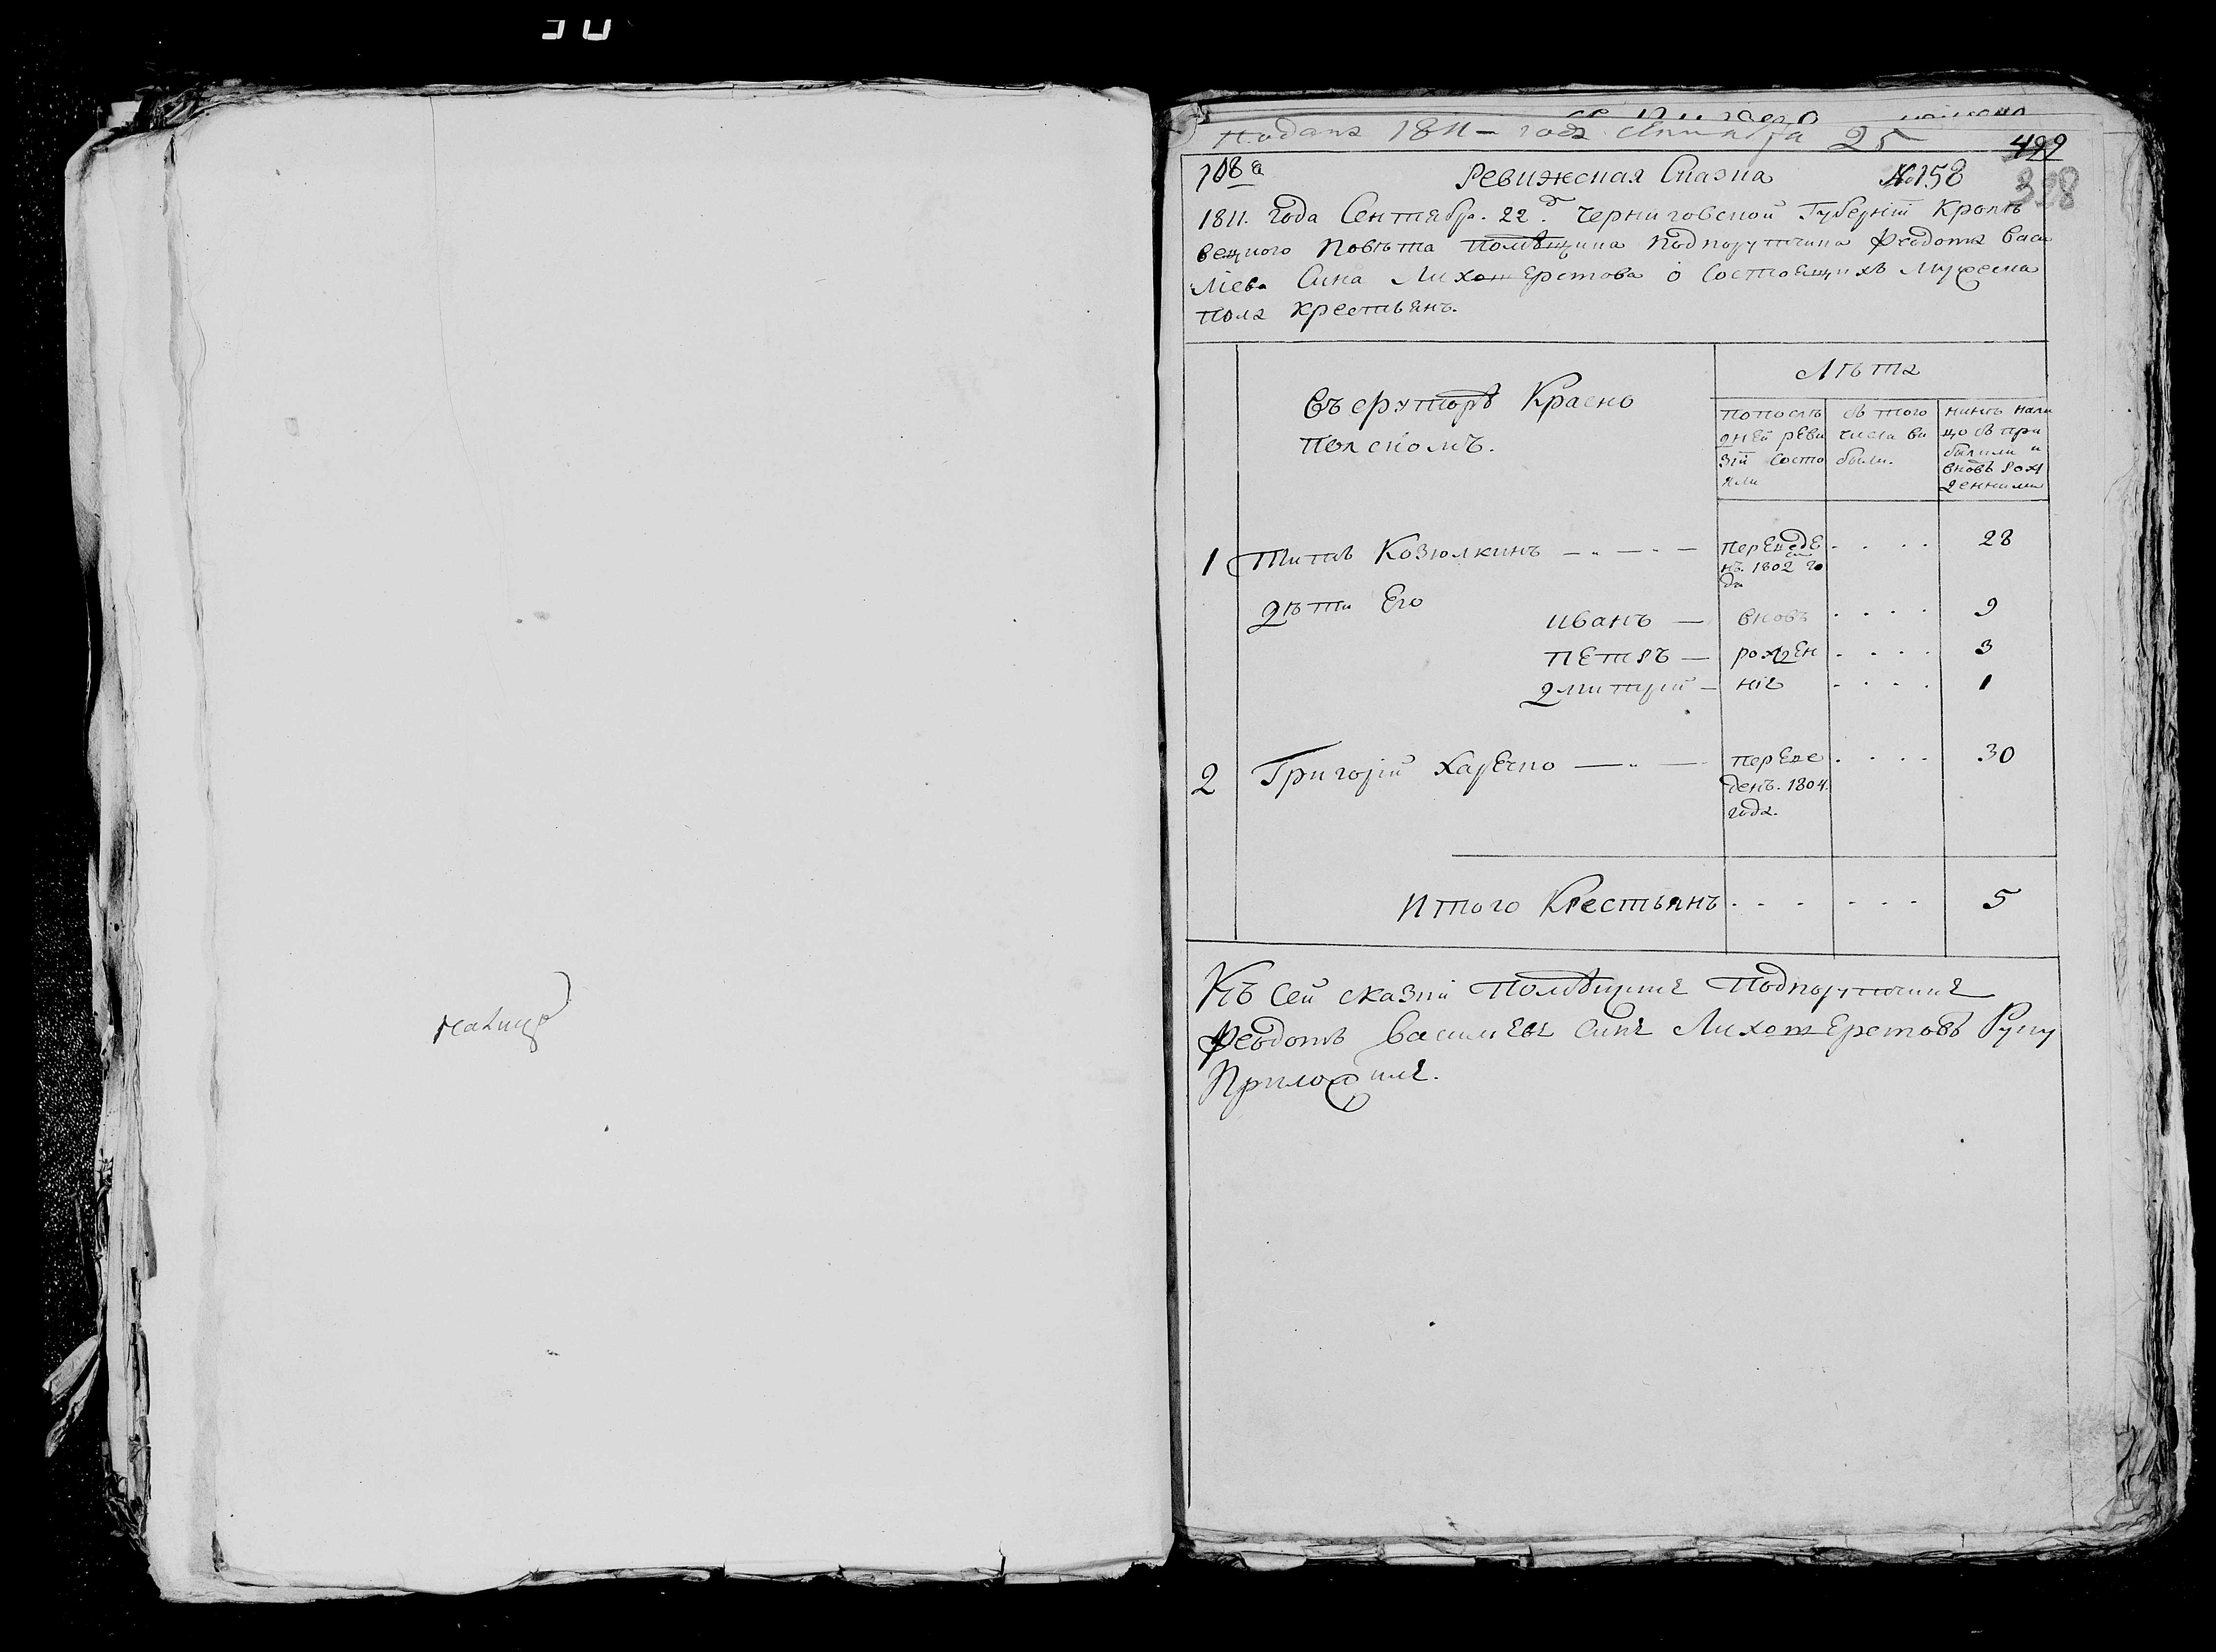 подана 1811 – года сентября 25
499
108 а Ревижская Сказка №158
398
1811. года Сентябр. 22.д черниговской Губернiи Кроле
вецкого Повѣта Помѣщика Подпорутчика Феодота Васи
лiева Сина Лихошерстова о Состоящихъ Мужеска
пола крестьянъ.
въ хуторѣ Красно
полскомъ.
Лѣта
попослѣ
дней реви
зiи Состо
яли
съ того
числа ви
были.
нинѣ нали
цо съ при
билими и
вновь рож
денними
1 Титъ Козюлкинъ
переведе
нъ. 1802 го
да
28
дѣти Его
иванъ — вновъ 9
петръ — рожден 3
дмитрiй — нiе 1
2 Григорiй Харечко
переве
денъ. 1804.
года.
30
Итого Крестьянъ 5
Къ сей сказки Помѣщикъ Подпорутчикъ
Феодотъ Василиевъ Синъ Лихошерстовъ Руку
Приложилъ.